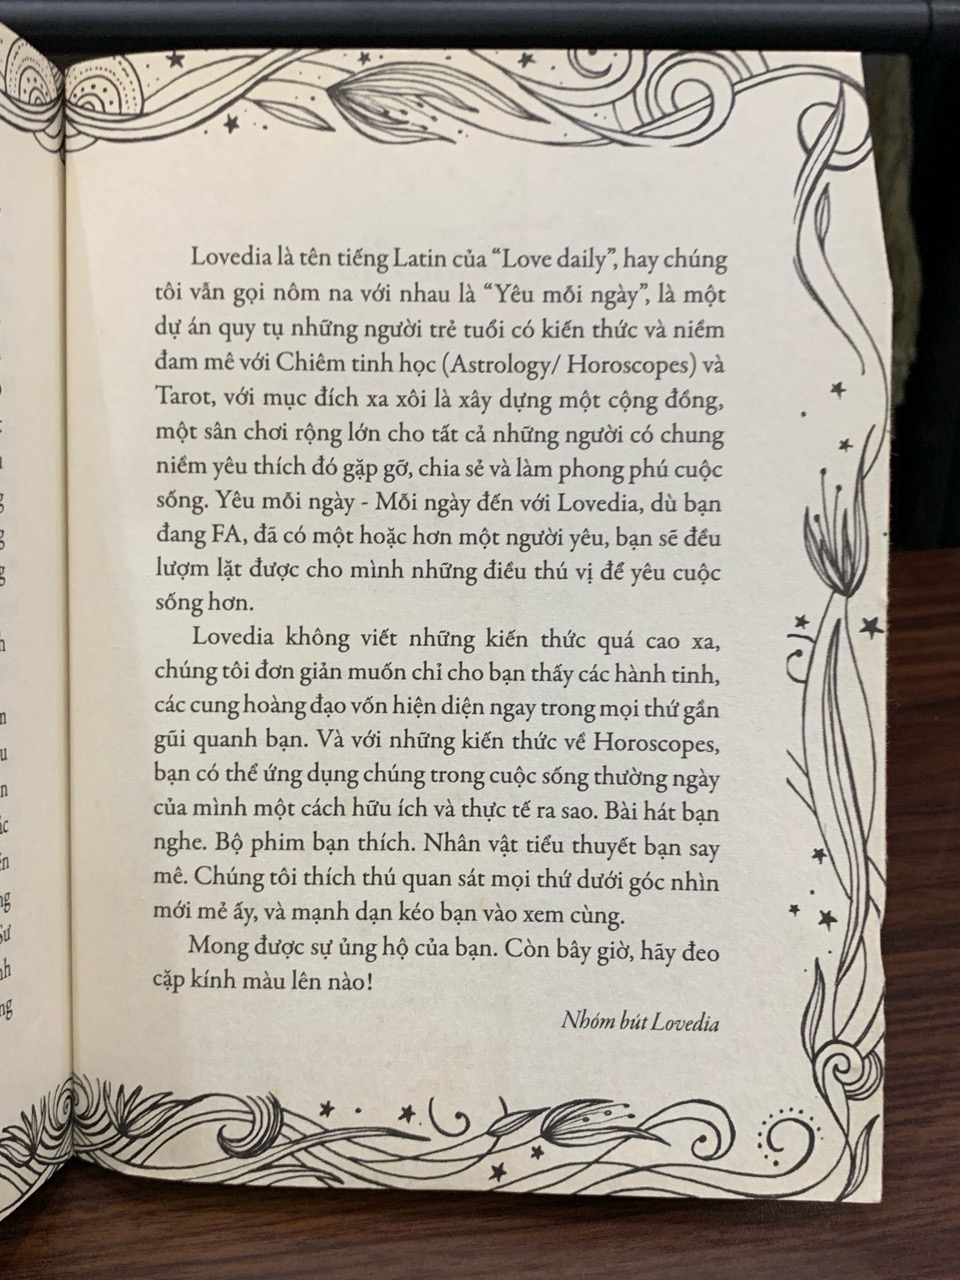 Lovedia là tên tiếng Latin của “Love daily”, hay chúng
tôi vẫn gọi nôm na với nhau là “Yêu mỗi ngày”, là một
dự án quy tụ những người trẻ tuổi có kiến thức và niềm
đam mê với Chiêm tinh học (Astrology/ Horoscopes) và
Tarot, với mục đích xa xôi là xây dựng một cộng đồng,
một sân chơi rộng lớn cho tất cả những người có chung
niềm yêu thích đó gặp gỡ, chia sẻ và làm phong phú cuộc
sống. Yêu mỗi ngày - Mỗi ngày đến với Lovedia, dù bạn
đang FA, đã có một hoặc hơn một người yêu, bạn sẽ đều
lượm lặt được cho mình những điều thú vị để yêu cuộc
sống hơn.
Lovedia không viết những kiến thức quá cao xa,
chúng tôi đơn giản muốn chỉ cho bạn thấy các hành tinh,
các cung hoàng đạo vốn hiện diện ngay trong mọi thứ gần
gũi quanh bạn. Và với những kiến thức về Horoscopes,
bạn có thể ứng dụng chúng trong cuộc sống thường ngày
của mình một cách hữu ích và thực tế ra sao. Bài hát bạn
nghe. Bộ phim bạn thích. Nhân vật tiểu thuyết bạn say
mê. Chúng tôi thích thú quan sát mọi thứ dưới góc nhìn
mới mẻ ấy, và mạnh dạn kéo bạn vào xem cùng.
Mong được sự ủng hộ của bạn. Còn bây giờ, hãy đeo
cặp kính màu lên nào!
Nhóm bút Lovedia